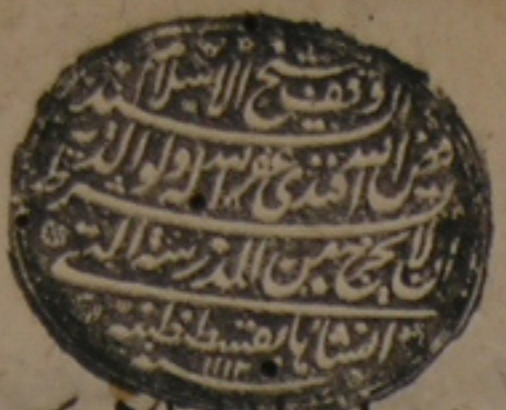 وقف شيخ الاسلام السيد
فيض الله افندى غفر الله له ولوالديه
بشرط ان لا يخرج من المدرسة التى
انشأها بقسطنطينية
١١١٣